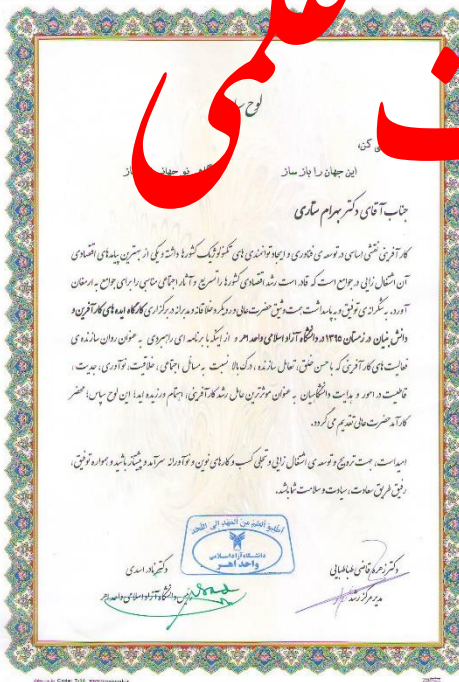 علمی
لوح سپاس
این جهان را باز ساز
جناب آقای دکتر بهرام ستاری
کارآفرینی نقشی اساسی در توسعه ی فناوری و ایجاد توانمندی های تکنولوژیک کشورها داشته و یکی از بهترین پیامدهای اقتصادی
آن اشتغال زایی در جوامع است که قادر است رشد اقتصادی کشورها را تسریع و آثار اجتماعی مناسبی را برای جوامع به ارمغان
آورد. به شکرانه ی توفیق و به پاسداشت همت وثیق حضرت عالی در رویکرد خلاقانه و مدبرانه در برگزاری کارگاه ایده های کارآفرین و
دانش بنیان در زمستان ۱۳۹۵ در دانشگاه آزاد اسلامی واحد اهر و از اینکه با برنامه ای راهبردی به عنوان روان سازنده ی
فعالیت های کارآفرینی که با حسن خلق، تعامل سازنده، درک بالا نسبت به مسائل اجتماعی، خلاقیت، نوآوری، جدیت،
قاطعیت در امور و هدایت دانشگاهیان به عنوان موثرترین عامل رشد کارآفرینی، اهتمام ورزیده اید؛ این لوح سپاس؛ محضر
کارآمد حضرت عالی تقدیم می گردد.
امید است، جهت ترویج و توسعه ی اشتغال زایی و تجلی کسب و کارهای نوین و نوآورانه سرآمد و پیشتاز باشید و همواره توفیق،
رفیق طریق سعادت، سیادت و سلامت شما باشد.
اطلبو العلم من المهد الی اللحد
دانشگاه آزاد اسلامی
واحد اهر
دکتر زهره قاضی طباطبایی
مدیر مرکز رشد
دکتر نادر اسدی
رئیس دانشگاه آزاد اسلامی واحد اهر